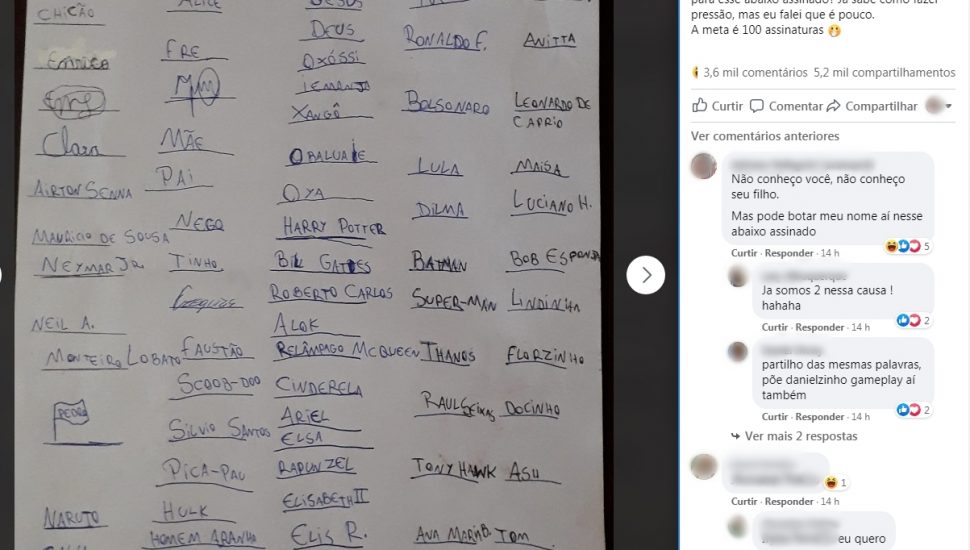 CHICÃO
Enrico
Clara
AIRTON SENNA
MAURICIO DE SOUSA
NEYMAR JR
NEIL A.
MONTEIRO LOBATO
PEDRO
NARUTO
ALICE
FRE
MÃE
PAI
NEGO
TINHO
FAUSTÃO
SCOOB-DOO
SILVIO SANTOS
PICA-PAU
HULK
HOMEM ARANHA
JESUS
DEUS
OXÓSSI
IEMANJA
XANGÔ
OBALUAIE
OXA
HARRY POTTER
BILL GATES
ROBERTO CARLOS
ALOK
RELÂMPAGO MCQUEEN
CINDERELA
ARIEL
ELSA
RAPUNZEL
ELISABETH II
ELIS R.
RONALDO F.
BOLSONARO
LULA
DILMA
BATMAN
SUPER-MAN
THANOS
RAUL SEIXAS
TONY HAWK
ANA MARIA B.
ANITTA
LEONARDO DE
CAPRIO
MAISA
LUCIANO H.
BOB ESPONJA
LINDINHA
FLORZINHA
DOCINHO
ASH
TOM
para esse abaixo assinado? Já sabe como fazer
pressão, mas eu falei que é pouco.
A meta é 100 assinaturas
3,6 mil comentários 5,2 mil compartilhamentos
Curtir Comentar Compartilhar
Ver comentários anteriores
Não conheço você, não conheço
seu filho.
Mas pode botar meu nome aí nesse
abaixo assinado
5
Curtir · Responder · 14 h
Ja somos 2 nessa causa !
hahaha
2
Curtir · Responder · 14 h
partilho das mesmas palavras,
põe danielzinho gameplay aí
também
2
Curtir · Responder · 14 h
Ver mais 2 respostas
1
Curtir · Responder · 14 h
eu quero